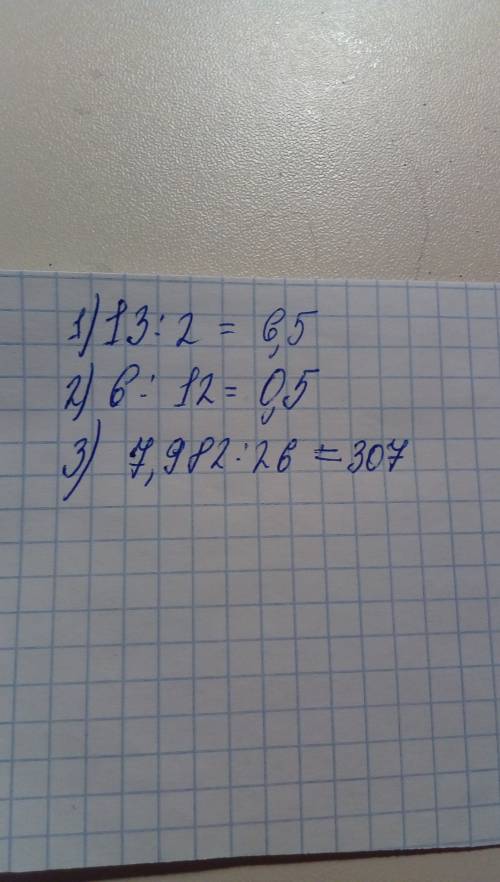 1) 13 : 2 = 6,5
2) 6 : 12 = 0,5
3) 7,982 : 26 = 307